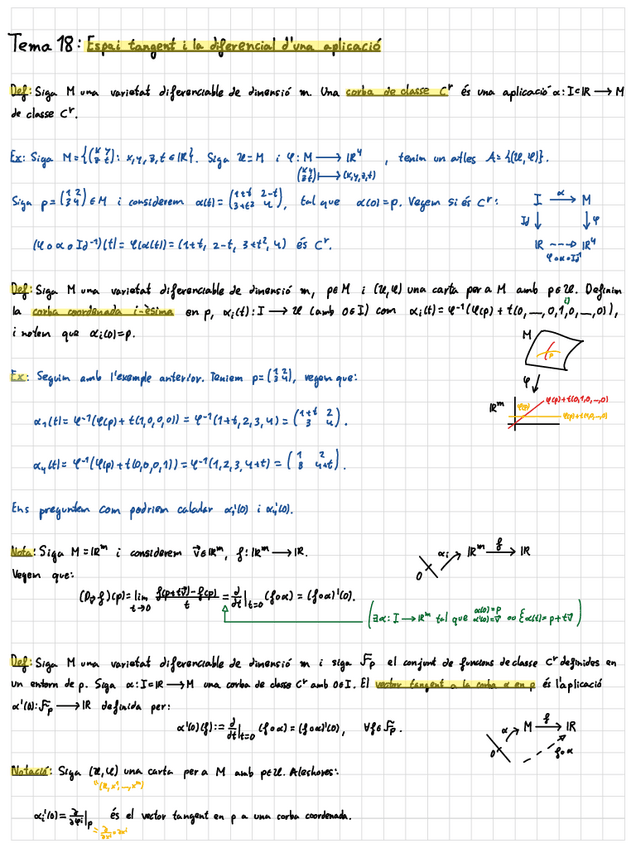 Tema 18: Espai tangent i la diferencial d'una aplicació
Def: Siga M una varietat diferenciable de dimensió m. Una corba de classe C^r és una aplicació α: I⊂ℝ → M
de classe C^r.
Ex: Siga M = {(x y; z t): x,y,z,t ∈ ℝ}. Siga U=M i φ: M → ℝ⁴, tenim un atles A = {(U,φ)}.
(x y; z t) ↦ (x,y,z,t)
Siga p = (1 2; 3 4) ∈ M i considerem α(t) = (1+t 2-t; 3+t² 4), tal que α(0)=p. Vegem si és C^r:
I α→ M
Id ↓ ↓ φ
ℝ ⇢ ℝ⁴
φ∘α∘Id⁻¹
(φ∘α∘Id⁻¹)(t) = φ(α(t)) = (1+t, 2-t, 3+t², 4) és C^r.
Def: Siga M una varietat diferenciable de dimensió m, p∈M i (U,φ) una carta per a M amb p∈U. Definim
la corba coordenada i-èsima en p, α_i(t): I → U (amb 0∈I) com α_i(t) = φ⁻¹(φ(p) + t(0, ..., 0, 1, 0, ..., 0)),
i)
i notem que α_i(0)=p.
M
p
φ
ℝ^m
φ(p)
φ(p)+t(0,1,0,...,0)
φ(p)+t(1,0,...,0)
Ex: Seguim amb l'exemple anterior. Teniem p = (1 2; 3 4), vegem que:
α₁(t) = φ⁻¹(φ(p) + t(1,0,0,0)) = φ⁻¹(1+t, 2, 3, 4) = (1+t 2; 3 4).
α₄(t) = φ⁻¹(φ(p) + t(0,0,0,1)) = φ⁻¹(1,2,3,4+t) = (1 2; 3 4+t).
Ens preguntem com podriem calcular α₁'(0) i α₄'(0).
Nota: Siga M=ℝ^m i considerem v⃗∈ℝ^m, f: ℝ^m → ℝ.
0 α_i ℝ^m f→ ℝ
Vegem que:
(D_v⃗ f)(p) = lim t→0 f(p+tv⃗)-f(p) / t = ∂/∂t|_{t=0} (f∘α) = (f∘α)'(0).
(∃α: I → ℝ^m tal que α(0)=p α'(0)=v⃗ {α(t) = p+tv⃗)
Def: Siga M una varietat diferenciable de dimensió m i siga F_p el conjunt de funcions de classe C^r definides en
un entorn de p. Siga α: I⊂ℝ → M una corba de classe C^r amb 0∈I. El vector tangent a la corba α en p és l'aplicació
α'(0): F_p → ℝ definida per:
α'(0)(f) := ∂/∂t|_{t=0} (f∘α) = (f∘α)'(0), ∀f∈F_p.
0 α M f→ ℝ
f∘α
Notació: Siga (U,φ) una carta per a M amb p∈U. Aleshores:
(U, x¹, ..., x^m)
α_i'(0) = ∂/∂φ^i|_p és el vector tangent en p a una corba coordenada.